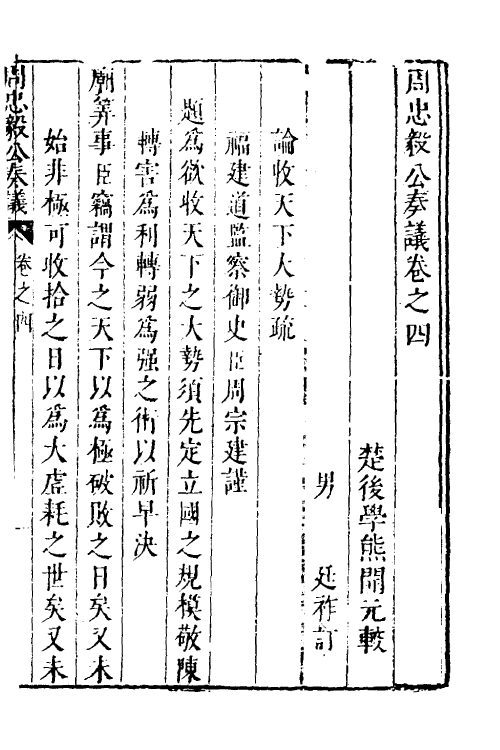 周忠毅公奏議卷之四
楚後學熊開元較
男　廷祚訂
論收天下大勢疏
福建道監察御史臣周宗建謹
題爲欲收天下之大勢須先定立國之規模敬陳
轉害爲利轉弱爲强之術以祈早決
廟筭事臣竊謂今之天下以爲極破敗之日矣又未
始非極可收拾之日以爲大虛耗之世矣又未
周忠毅公奏議　卷之四